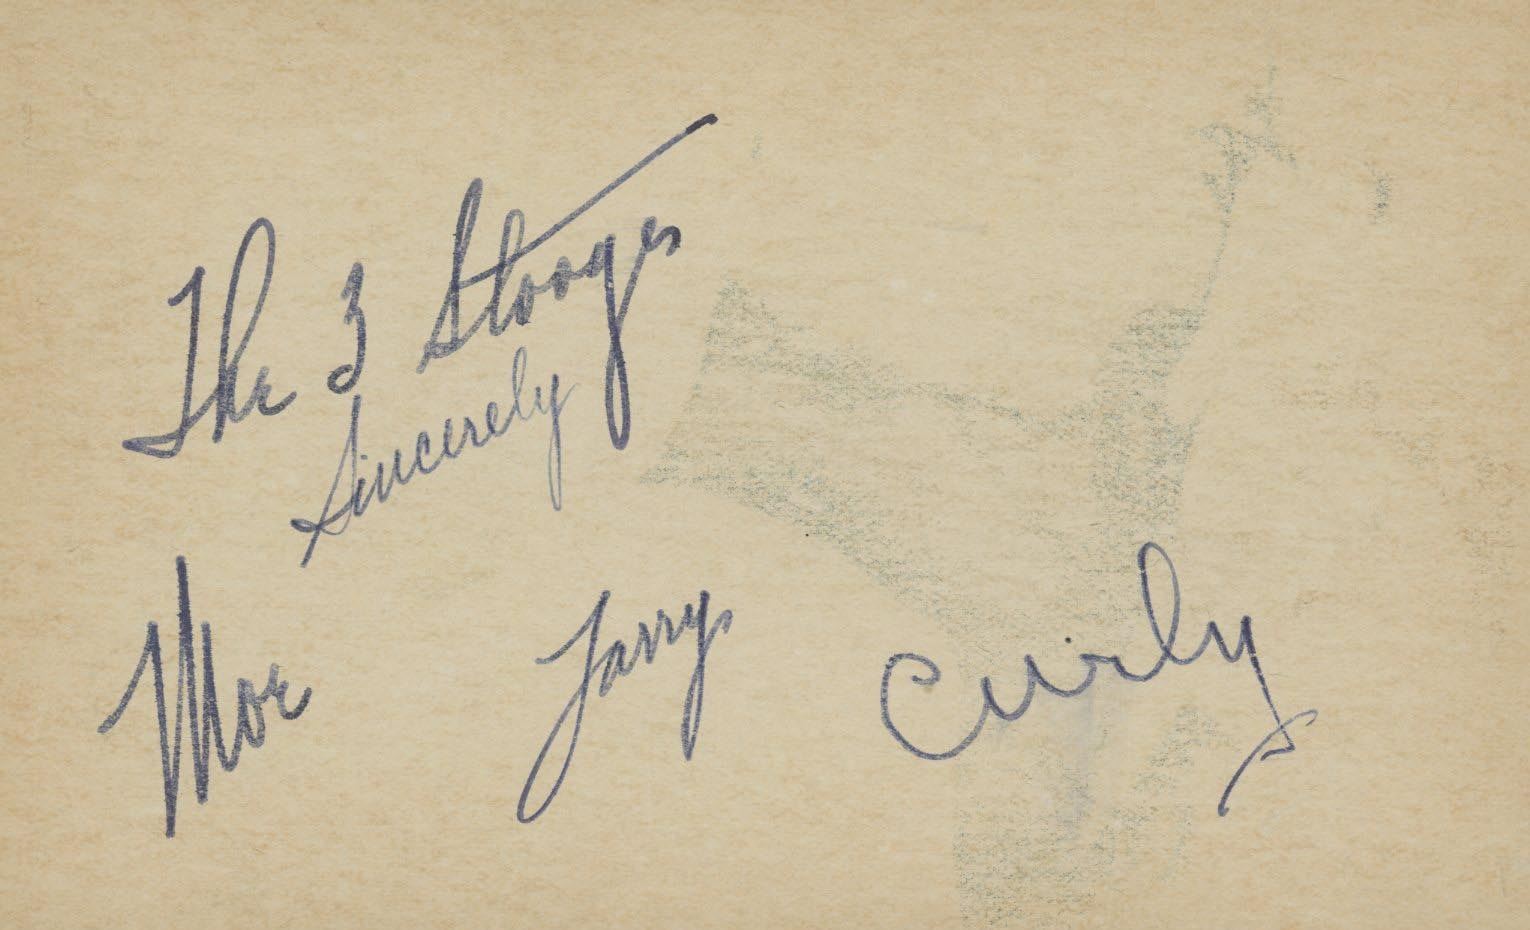 The 3 Stooges
Sincerely
Moe Larry Curly